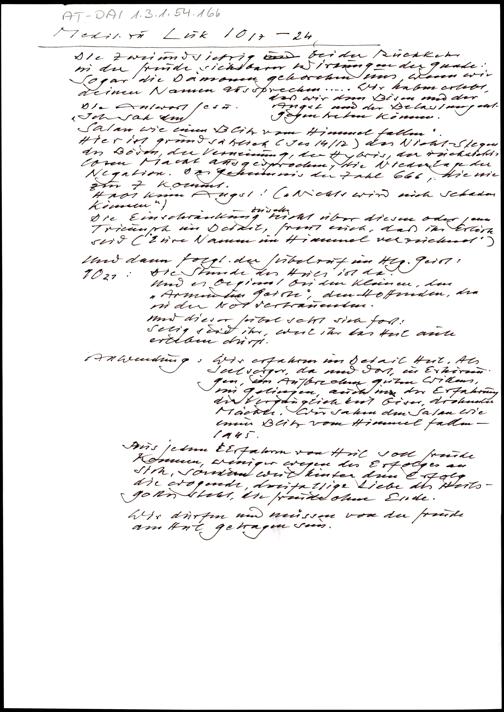 AT-DAI 1.3.1.54.166
Medit. zu Luk 10,17 - 24
Die Zweiundsiebzig bei der Rückkehr
in der Freude sichtbarer der Gnade:
Sogar die Dämonen gehorchen uns, wenn wir
deinen Namen aussprechen .... Wir haben erlebt,
daß wir dem Bösen und der
Angst und der
entgegentreten können.
Die Antwort Jesu:
Ich sah den
Satan wie einen Blitz vom Himmel fallen.
Hier ist grundsätzlich (Jes 14/12) das Nicht-Siegen
des Bösen, der Verneinung, der Hybris, der
Macht ausgesprochen, die Niederlage der
Negation. Das Geheimnis der Zahl 666, die nie
zur 7 kommt.
Habt keine Angst! ("Nichts wird euch schaden
können")
Die Einschränkung: nicht über diesen oder jenen
Triumph im Detail, freut euch, daß ihr
seid ("Eure Namen im Himmel verzeichnet")
Und dann folgt der Jubelruf im Hlg. Geist:
10,21: Die Stunde des Heils ist da:
Und es beginnt bei den Kleinen, den
"Armen im Geiste", den Hoffenden, den
in der Not Vertrauenden.
Und dieser Jubel setzt sich fort:
Selig seid ihr, weil ihr das Heil
erleben dürft.
Anwendung: Wir erfahren im Detail Heil. Als
Seelsorger, da und dort, in
im Aufbrechen guten Willens,
im Gelingen, auch in der Erfahrung
die Vergänglichkeit böser, drohender
Mächte. Wir sahen den Satan wie
einen Blitz vom Himmel fallen -
1945.
Aus jedem Erfahren von Heil soll Freude
kommen, weniger wegen des Erfolges an
sich, sondern weil hinter dem Erfolg
die wogende, dreifaltige Liebe des Heils-
gottes steht, die Freude ohne Ende.
Wir dürfen und müssen von der Freude
am Heil getragen sein.